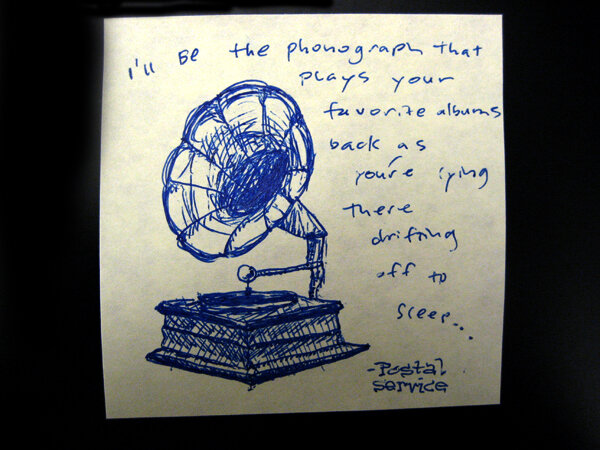 I'll BE the phonograph that
plays your
favorite albums
back as
you're lying
there
drifting
off to
sleep...
-Postal
service